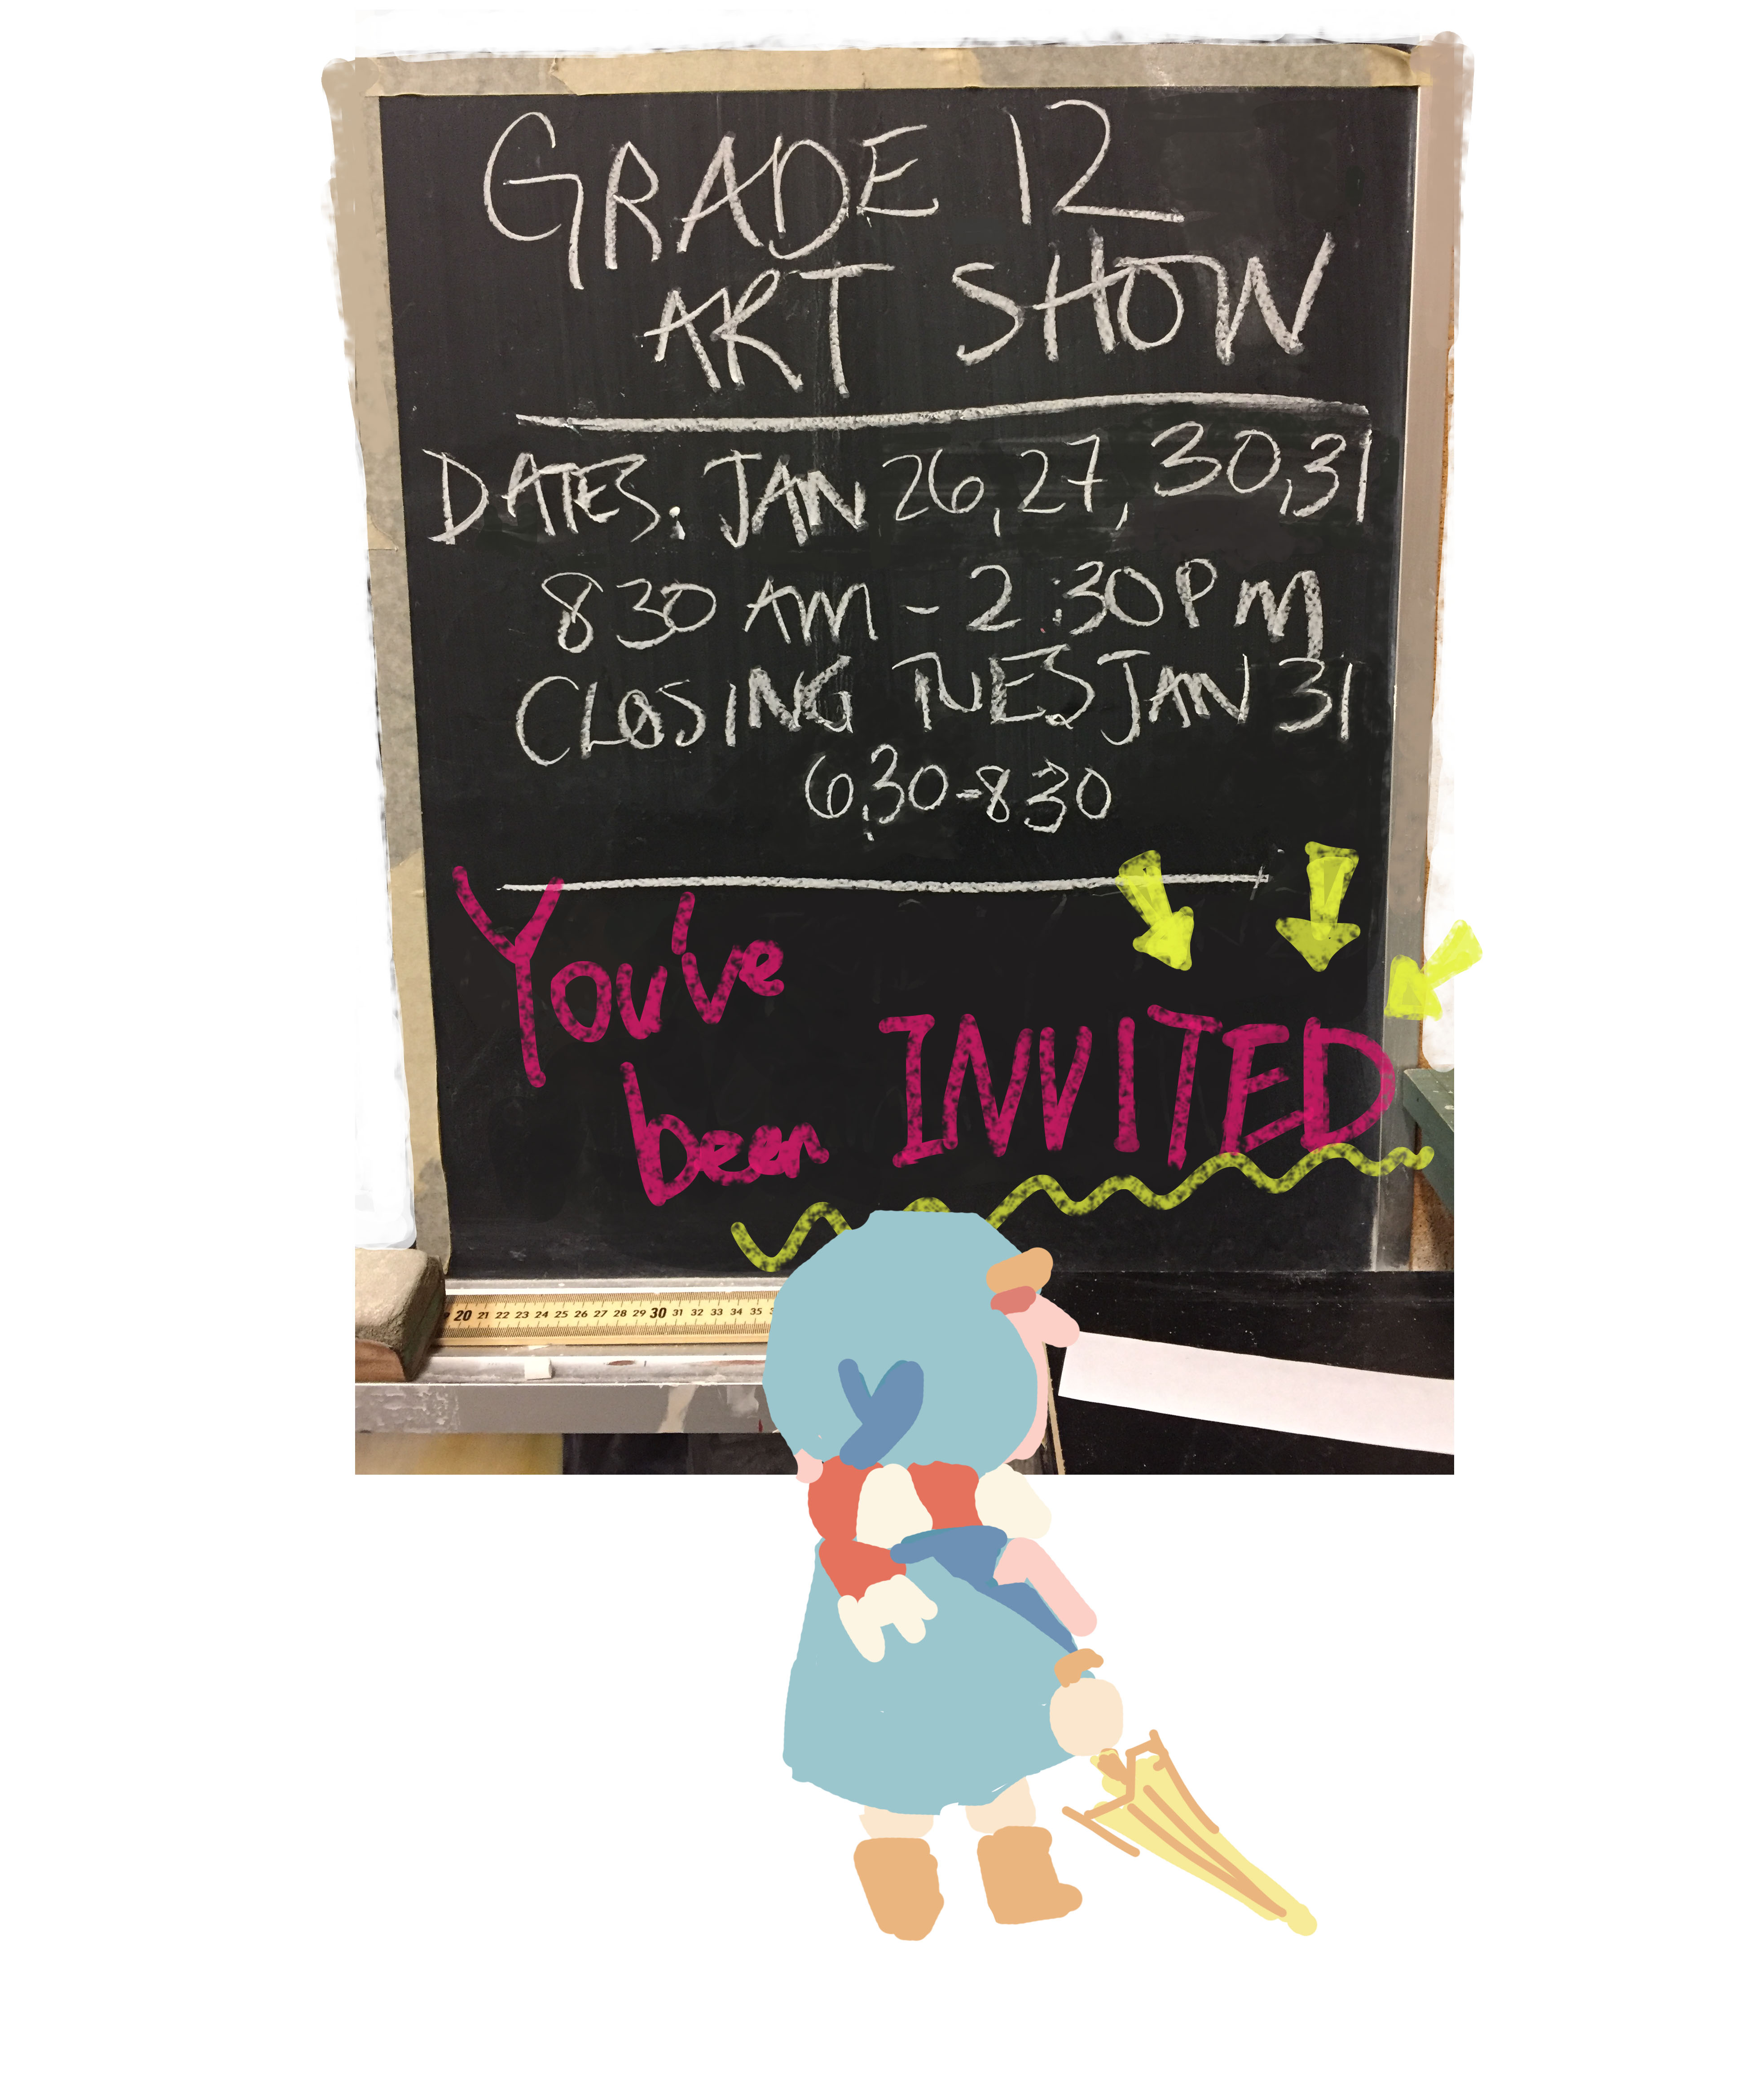 GRADE 12
ART SHOW
DATES: JAN 26, 27, 30, 31
8 30 AM - 2:30 PM
CLOSING TUES JAN 31
6:30 - 8 30
You've
been INVITED
20 21 22 23 24 25 26 27 28 29 30 31 32 33 34 35